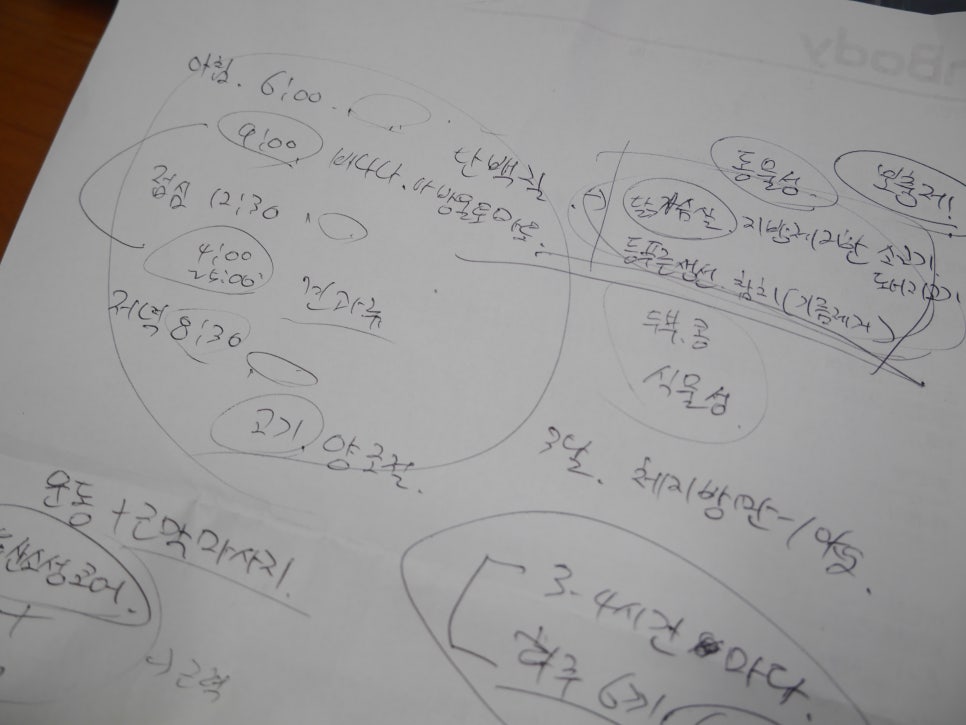 아침. 6:00.
9:00 바나나. 방울토마토.
단백질
점심 12:30
4:00
~5:00
견과류
저녁 8:30
고기. 양조절.
동물성
보충제!
닭가슴살 지방제거한 소고기.
돼지고기
등푸른생선. 참치(기름제거)
두부. 콩
식물성
3달. 체지방만
운동 + 근막마사지!
+
→ 근력
3-4시간 마다.
하루 6끼
InBody